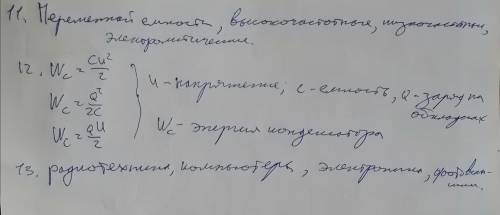 11. Переменной емкости, высокочастотные, низкочастотные,
электролитические.
12. Wc = CU²/2
Wc = Q²/2C
Wc = QU/2
U - напряжение, C - емкость, Q - заряд на
обкладках
Wc - энергия конденсатора
13. радиотехника, компьютеры, электроника, фотовспы-
шки.